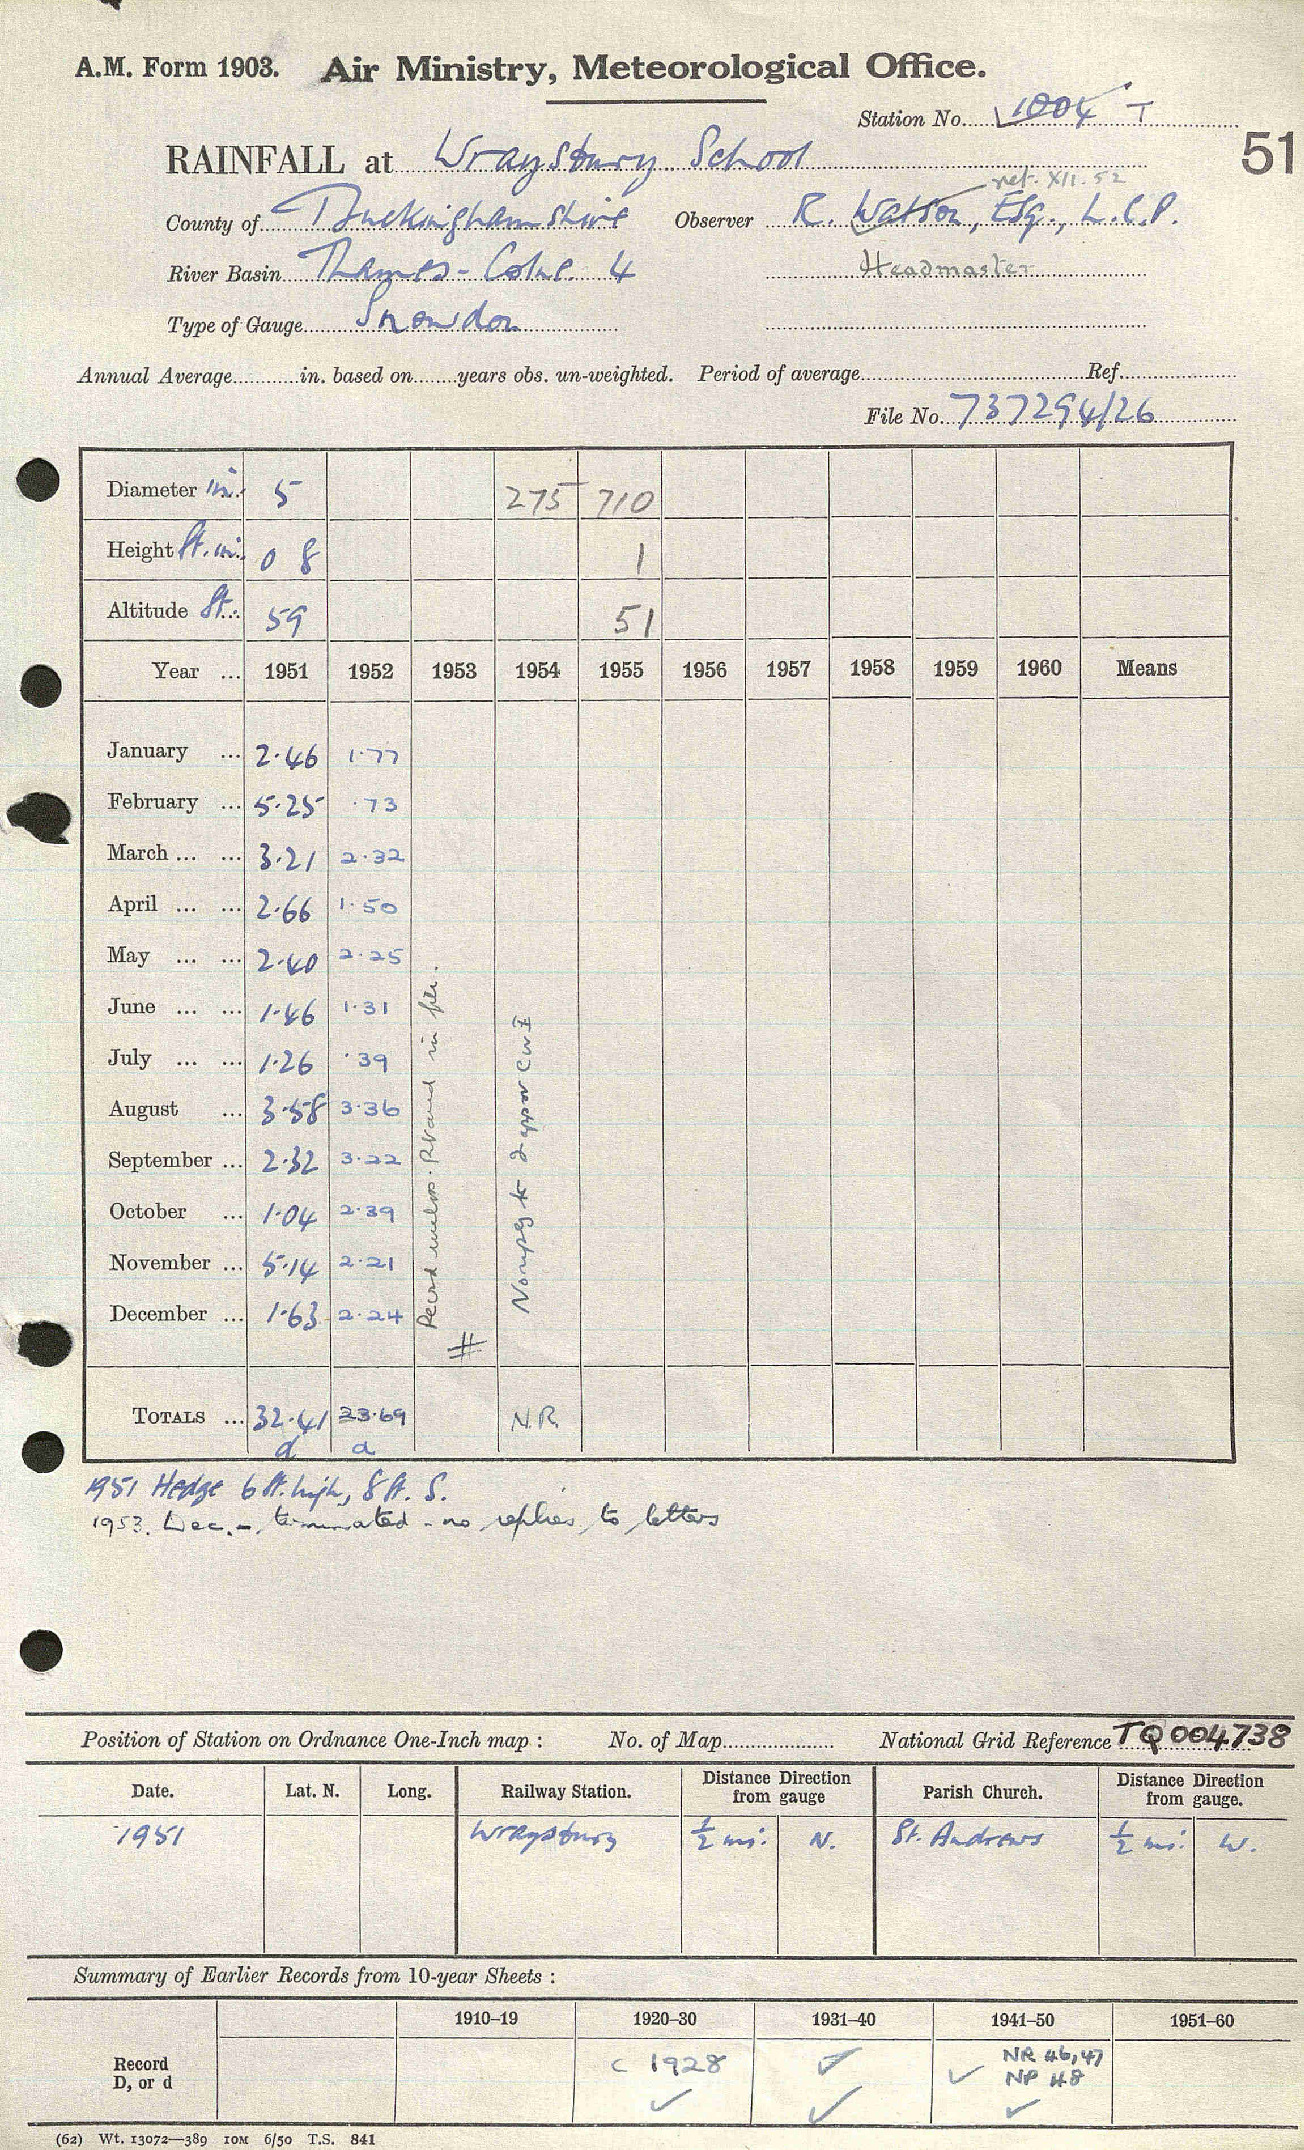 A.M. Form 1903. Air Ministry, Meteorological Office.
Station No. 1004 T
RAINFALL at Wraysbury School
51
ret. XII. 52
County of Buckinghamshire Observer R. Watson, Esq., L.C.P.
River Basin Thames - Colne 4 Headmaster
Type of Gauge Snowdon
Annual Average in. based on years obs. un-weighted. Period of average Ref.
File No. 737294/26
Diameter in. 5 275 710
Height ft. in. 0 8 1
Altitude ft. 59 51
Year ... 1951 1952 1953 1954 1955 1956 1957 1958 1959 1960 Means
January ... 2.46 1.77
February ... 5.25 .73
March ... ... 3.21 2.32
April ... ... 2.66 1.50
May ... ... 2.40 2.25
June ... ... 1.46 1.31
July ... ... 1.26 .39
August ... 3.58 3.36
September ... 2.32 3.22
October ... 1.04 2.39
November ... 5.14 2.21
December ... 1.63 2.24
in file.
#
TOTALS ... 32.41 23.69 N.R.
d a
1951 Hedge 6 ft. high, 8 ft. S.
1953. Dec. - terminated - no replies to letters
Position of Station on Ordnance One-Inch map : No. of Map National Grid Reference TQ 004738
Date. Lat. N. Long. Railway Station. Distance Direction from gauge Parish Church. Distance Direction from gauge.
1951 Wraysbury ½ mi. N. St. Andrews ½ mi. W.
Summary of Earlier Records from 10-year Sheets :
1910–19 1920–30 1931–40 1941–50 1951–60
Record D, or d c 1928 ✓ ✓ ✓ ✓ NR 46,47
NP 48
✓
(62) Wt. 13072—389 10M 6/50 T.S. 841